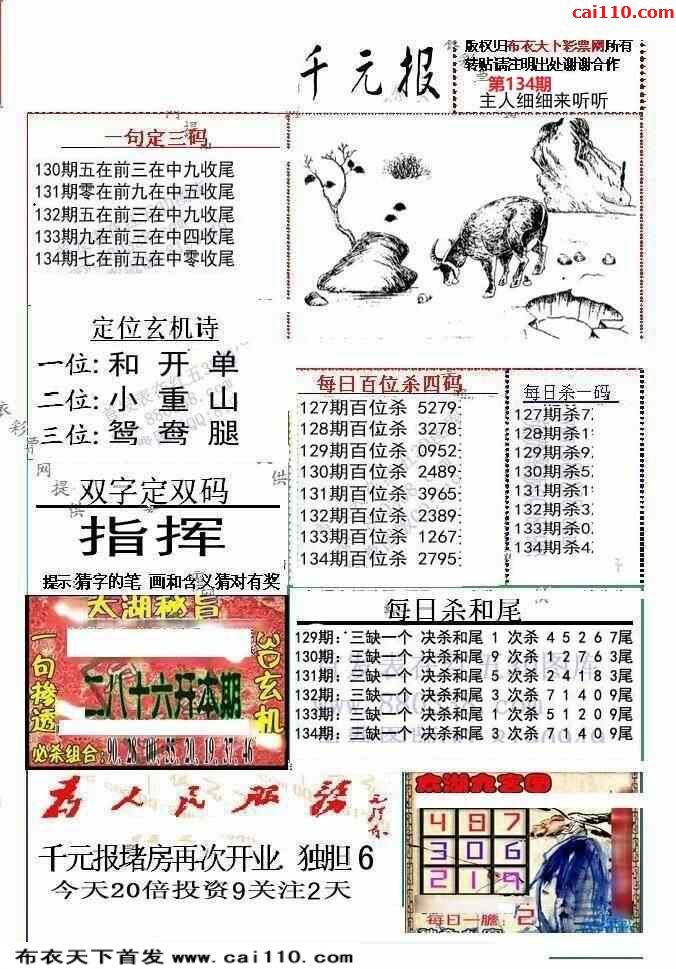 cai110.com
版权归布衣天下彩票网所有
转贴请注明出处谢谢合作
千元报
第134期
主人细细来听听
一句定三码
130期五在前三在中九收尾
131期零在前九在中五收尾
132期五在前三在中九收尾
133期九在前三在中四收尾
134期七在前五在中零收尾
定位玄机诗
一位: 和 开 单
二位: 小 重 山
三位: 鸳 鸯 腿
每日百位杀四码
127期百位杀 5279
128期百位杀 3278
129期百位杀 0952
130期百位杀 2489
131期百位杀 3965
132期百位杀 2389
133期百位杀 1267
134期百位杀 2795
每日杀一码
127期杀7
128期杀1
129期杀9
130期杀5
131期杀1
132期杀3
133期杀0
134期杀4
双字定双码
指挥
提示:猜字的笔 画和含义猜对有奖
太湖秘旨
一句掺透
二八十六开本期
3D玄机
必杀组合: 90, 28, 00, 55, 20, 19, 37, 46
每日杀和尾
129期: 三缺一个 决杀和尾 1 次杀 4 5 2 6 7尾
130期: 三缺一个 决杀和尾 9 次杀 1 2 7 6 3尾
131期: 三缺一个 决杀和尾 5 次杀 2 4 1 8 3尾
132期: 三缺一个 决杀和尾 3 次杀 7 1 4 0 9尾
133期: 三缺一个 决杀和尾 1 次杀 5 1 2 0 9尾
134期: 三缺一个 决杀和尾 3 次杀 7 1 4 0 9尾
为人民服务
千元报堵房再次开业. 独胆 6
今天20倍投资9关注2天
太湖九宫图
4 8 7
3 0 6
2 1 9
每日一胆: 2
布衣天下首发 www.cai110.com